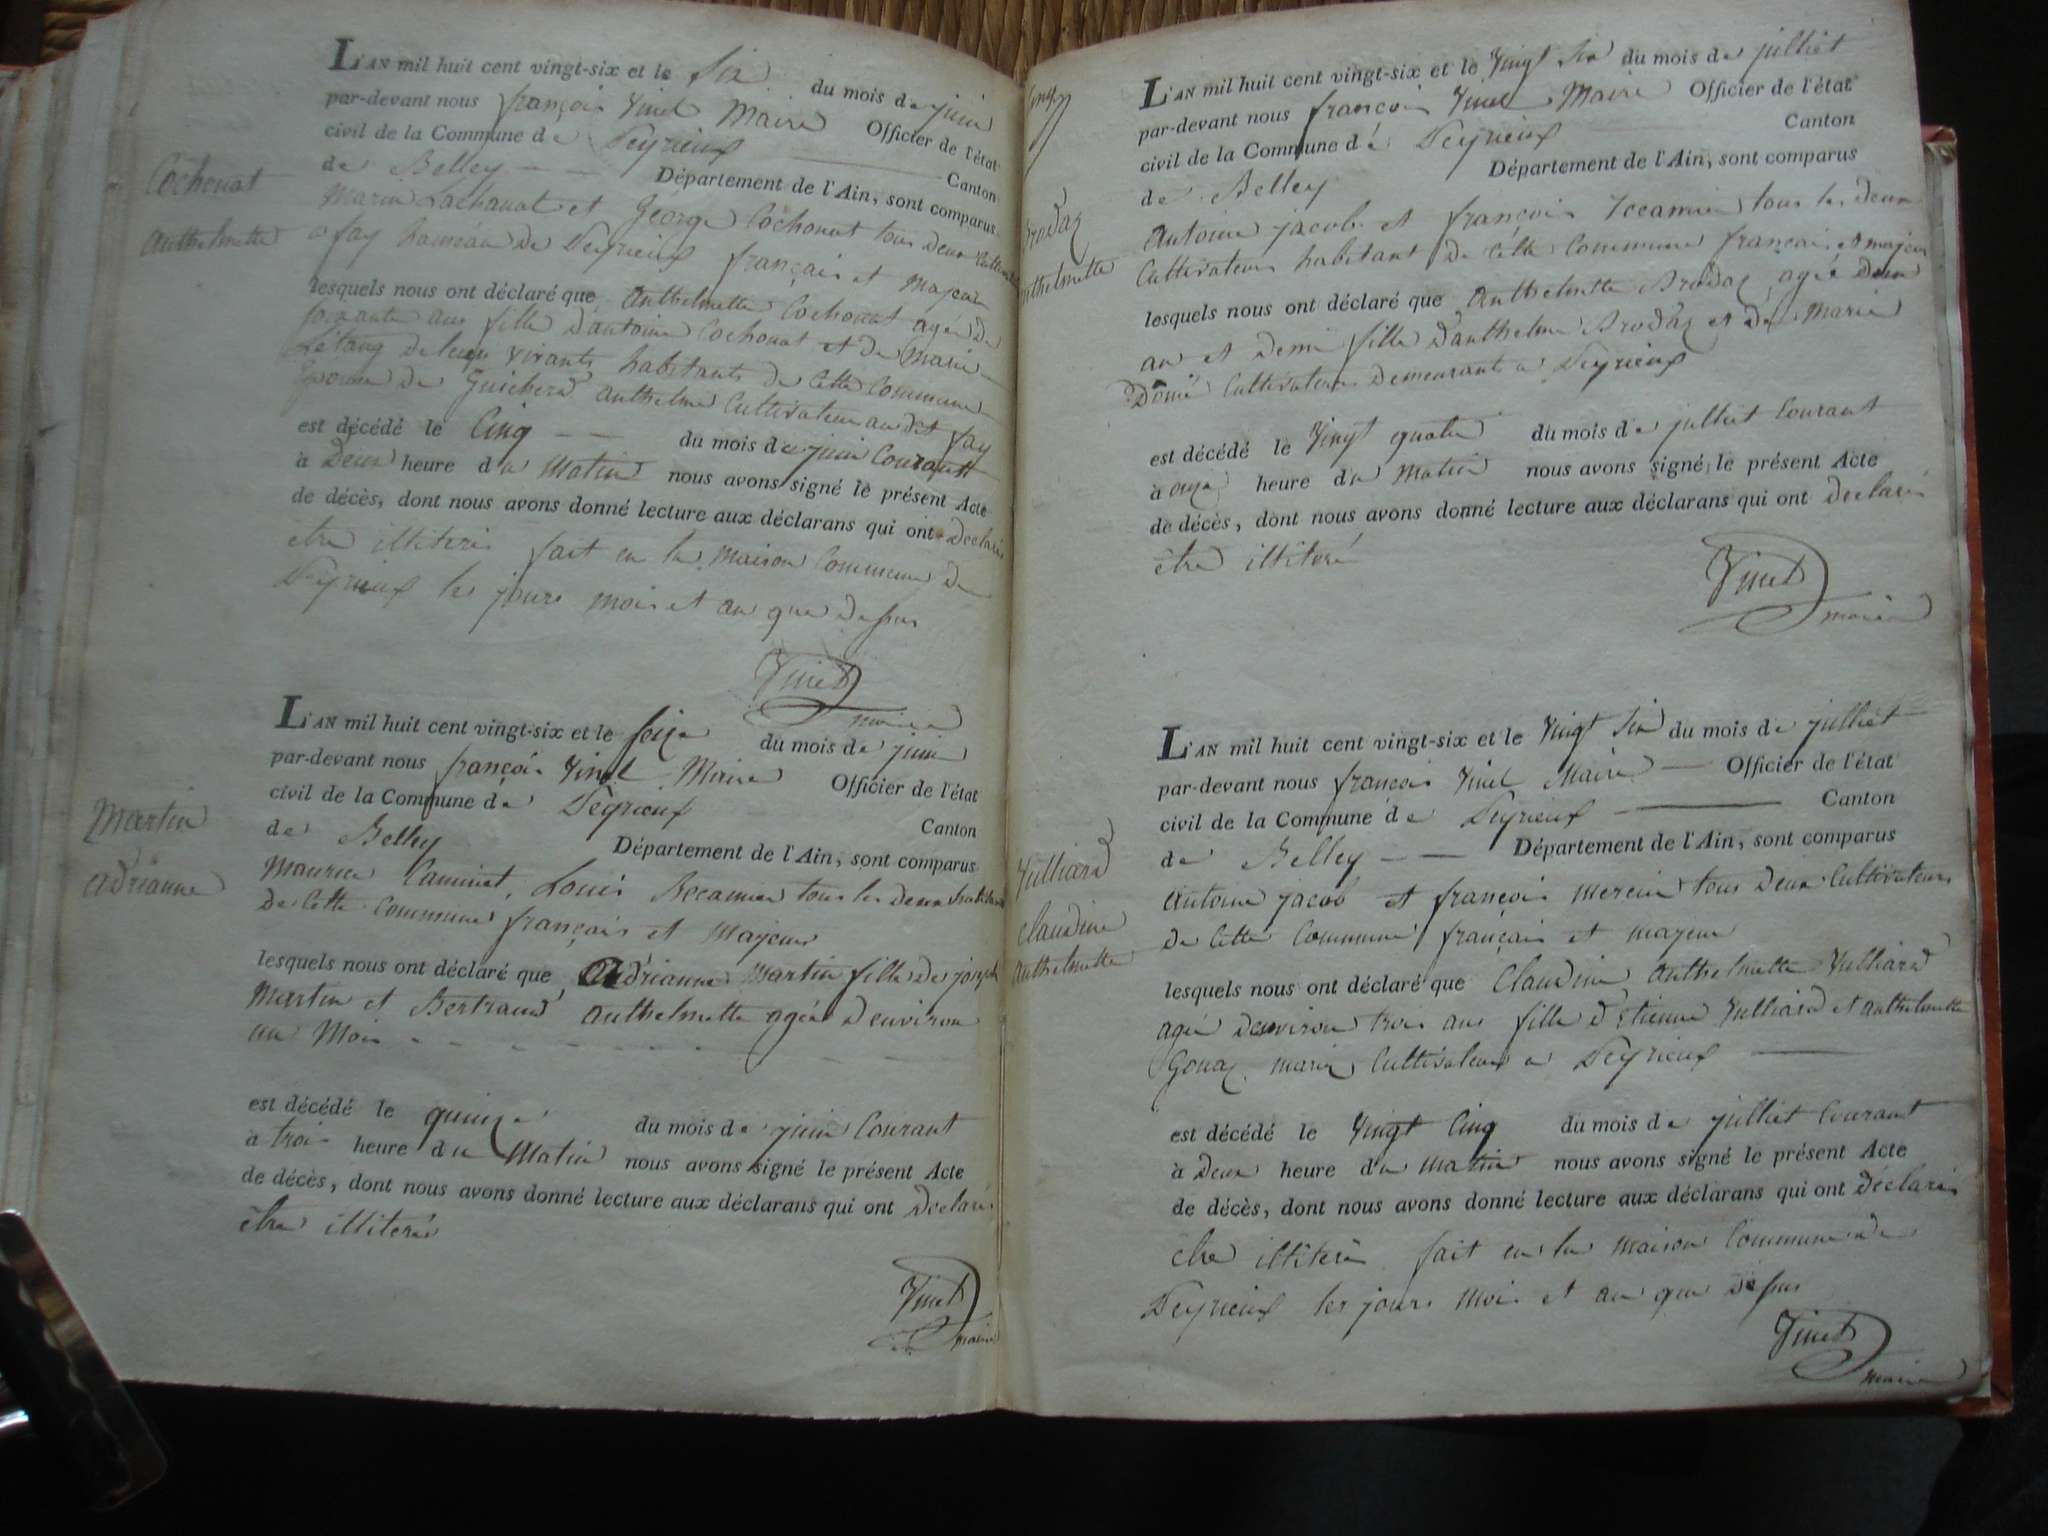 L'AN mil huit cent vingt-six et le Six du mois de juin
par-devant nous françois Vinet Maire Officier de l'état
civil de la Commune de Peyrieux Canton
de Belley Département de l'Ain, sont comparus
Cochonat
anthelmette
Marin et George Cochonat tous deux
a fay hameau de Peyrieux français et majeur
lesquels nous ont déclaré que anthelmette Cochonat agée de
soixante ans fille d'antoine Cochonat et de Marie
Létang de leurs vivants habitants de cette commune
de Guicherd anthelme Cultivateur au dit fay
est décédé le Cinq du mois de juin Courant
à Deux heure du Matin nous avons signé le présent Acte
de décès, dont nous avons donné lecture aux déclarans qui ont Declaré
etre illiteré fait en la maison Commune de
Peyrieux les jours mois et an que dessus
Vinet
maire
L'AN mil huit cent vingt-six et le seize du mois de juin
par-devant nous françois Vinet Maire Officier de l'état
civil de la Commune de Peyrieux Canton
de Belley Département de l'Ain, sont comparus
Martin
adrianne
Maurice Caminet, Louis Récamier tous les deux
de cette commune français et Majeur
lesquels nous ont déclaré que adrianne Martin fille de joseph
Martin et Bertrand anthelmette agée d'environ
un Mois
est décédé le quinze du mois de juin Courant
à trois heure du Matin nous avons signé le présent Acte
de décès, dont nous avons donné lecture aux déclarans qui ont Declaré
etre illiteré
Vinet
maire
L'AN mil huit cent vingt-six et le Vingt Six du mois de julliet
par-devant nous françois Vinet Maire Officier de l'état
civil de la Commune de Peyrieux Canton
de Belley Département de l'Ain, sont comparus
Brodaz
anthelmette
antoine jacob et françois Récamier tous les deux
Cultivateurs habitant de cette Commune français et majeur
lesquels nous ont déclaré que anthelmette Brodaz agée d'un
an et demi fille d'anthelme Brodaz et de Marie
Cultivateurs demeurant a Peyrieux
est décédé le Vingt quatre du mois de julliet Courant
à onze heure du matin nous avons signé le présent Acte
de décès, dont nous avons donné lecture aux déclarans qui ont declaré
etre illiteré
Vinet
maire
L'AN mil huit cent vingt-six et le Vingt Six du mois de julliet
par-devant nous françois Vinet Maire Officier de l'état
civil de la Commune de Peyrieux Canton
de Belley Département de l'Ain, sont comparus
Vulliard
claudine
anthelmette
antoine jacob et françois mercier tous deux Cultivateurs
de cette Commune français et majeur
lesquels nous ont déclaré que Claudine anthelmette Vulliard
agée d'environ trois ans fille d'etienne Vulliard et anthelmette
Gonaz mariés Cultivateurs a Peyrieux
est décédé le Vingt Cinq du mois de julliet Courant
à Deux heure du matin nous avons signé le présent Acte
de décès, dont nous avons donné lecture aux déclarans qui ont déclaré
etre illiteré fait en la maison Commune de
Peyrieux les jours mois et an que dessus
Vinet
maire